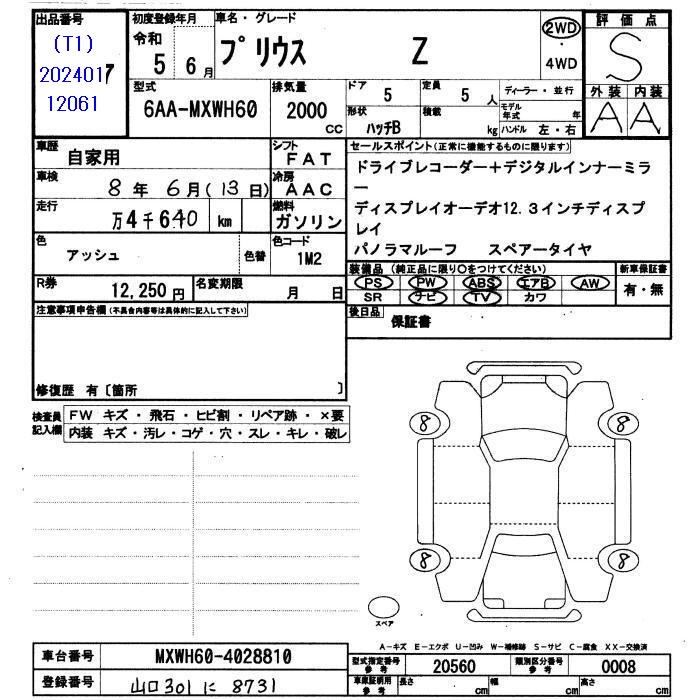 出品番号
(T1)
2024017
12061
初度登録年月
令和
5 6月
車名・グレード
プリウス Z
2WD
・
4WD
評価点
S
型式
6AA-MXWH60
排気量
2000
CC
ドア
5
定員
5人
ディーラー・並行
形状
ハッチB
積載
kg
モデル年式 年
ハンドル 左・右
外装 内装
A A
車歴
自家用
シフト
FAT
車検
8年 6月(13日)
冷房
AAC
走行
万4千640 km
燃料
ガソリン
色
アッシュ
色替
色コード
1M2
R券
12,250円
名変期限
月 日
セールスポイント(正常に機能するものに限ります)
ドライブレコーダー+デジタルインナーミラ
ー
ディスプレイオーデオ12.3インチディスプ
レイ
パノラマルーフ スペアータイヤ
装備品(純正品に限り○をつけてください)
新車保証書
PS PW ABS エアB AW
SR ナビ TV カワ
有・無
後日品
保証書
注意事項申告欄(不具合内容等は具体的に記入して下さい)
修復歴 有〔箇所 〕
検査員
記入欄
FW キズ・飛石・ヒビ割・リペア跡・×要
内装 キズ・汚レ・コゲ・穴・スレ・キレ・破レ
8 8
8 8
スペア
A-キズ E-エクボ U-凹み W-補修跡 S-サビ C-腐食 XX-交換済
車台番号
MXWH60-4028810
登録番号
山口301に8731
型式指定番号
参考
20560
類別区分番号
参考
0008
車庫証明用
参考
長さ cm
幅 cm
高さ cm